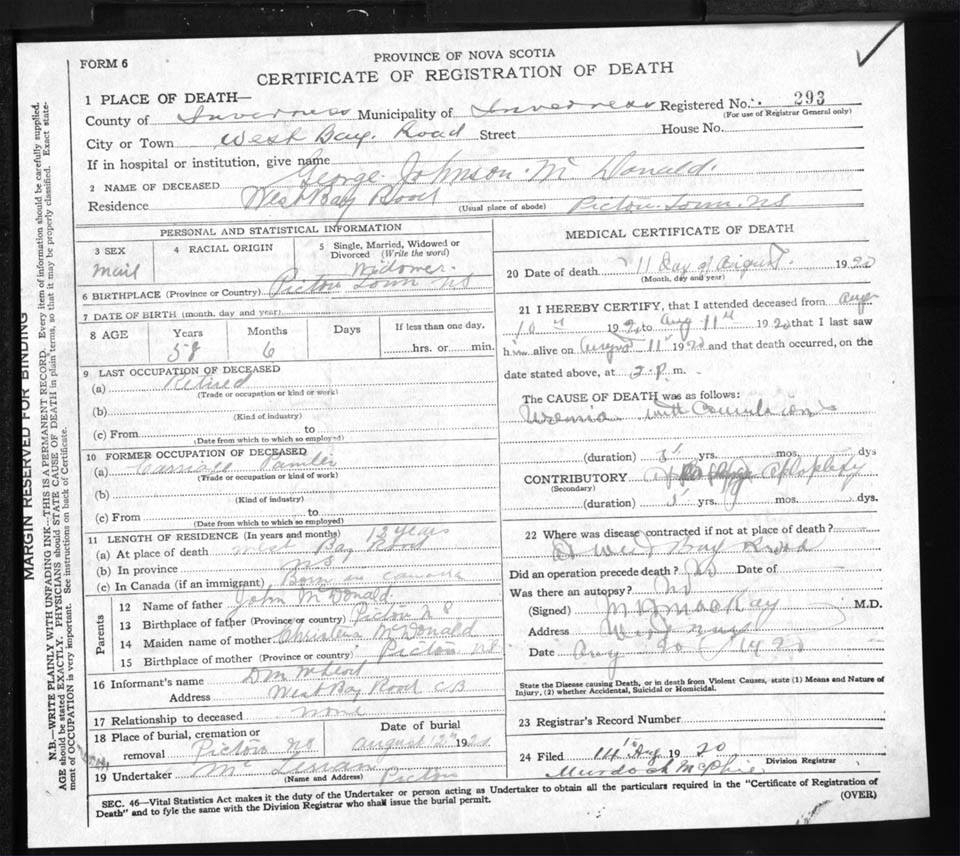 FORM 6
PROVINCE OF NOVA SCOTIA
CERTIFICATE OF REGISTRATION OF DEATH
1 PLACE OF DEATH—
County of Inverness Municipality of Inverness Registered No. 293
(For use of Registrar General only)
City or Town West Bay Road Street House No.
If in hospital or institution, give name
2 NAME OF DECEASED George Johnson Mc Donald
Residence West Bay Road (Usual place of abode) Pictou Town NS
PERSONAL AND STATISTICAL INFORMATION
3 SEX mail
4 RACIAL ORIGIN
5 Single, Married, Widowed or Divorced (Write the word) Widower
6 BIRTHPLACE (Province or Country) Pictou Town NS
7 DATE OF BIRTH (month, day and year)
8 AGE Years Months Days If less than one day,
58 6 hrs. or min.
9 LAST OCCUPATION OF DECEASED
(a) Retired
(Trade or occupation or kind or work)
(b)
(Kind of industry)
(c) From to
(Date from which to which so employed)
10 FORMER OCCUPATION OF DECEASED
(a) Carriage Painter
(Trade or occupation or kind or work)
(b)
(Kind of industry)
(c) From to
(Date from which to which so employed)
11 LENGTH OF RESIDENCE (In years and months) 12 years
(a) At place of death West Bay Road
(b) In province NS
(c) In Canada (if an immigrant) Born in Canada
Parents
12 Name of father John McDonald
13 Birthplace of father (Province or country) Pictou NS
14 Maiden name of mother McDonald
15 Birthplace of mother (Province or country) Pictou NS
16 Informant's name D M
Address West Bay Road CB
17 Relationship to deceased none
18 Place of burial, cremation or removal Pictou NS
Date of burial August 12th 1920
19 Undertaker Mc (Name and Address) Pictou
MEDICAL CERTIFICATE OF DEATH
20 Date of death 11 Day of August 1920
(Month, day and year)
21 I HEREBY CERTIFY, that I attended deceased from Aug
10th 1920 to Aug 11th 1920 that I last saw
him alive on August 11 1920 and that death occurred, on the
date stated above, at 2 p. m.
The CAUSE OF DEATH was as follows:
Uremia with Convulsions
(duration) yrs. mos. dys
CONTRIBUTORY
(Secondary)
(duration) yrs. mos. dys.
22 Where was disease contracted if not at place of death?
At West Bay Road
Did an operation precede death? No Date of
Was there an autopsy? No
(Signed) MacKay M.D.
Address
Date Aug 20 1920
State the Disease causing Death, or in death from Violent Causes, state (1) Means and Nature of
Injury, (2) whether Accidental, Suicidal or Homicidal.
23 Registrar's Record Number
24 Filed 14 Aug 1920
Division Registrar
Murdoch McPhie
SEC. 46—Vital Statistics Act makes it the duty of the Undertaker or person acting as Undertaker to obtain all the particulars required in the "Certificate of Registration of
Death" and to fyle the same with the Division Registrar who shall issue the burial permit.
(OVER)
MARGIN RESERVED FOR BINDING
N.B.—WRITE PLAINLY WITH UNFADING INK—THIS IS A PERMANENT RECORD. Every item of information should be carefully supplied.
AGE should be stated EXACTLY. PHYSICIANS should STATE CAUSE OF DEATH in plain terms, so that it may be properly classified. Exact state-
ment of OCCUPATION is very important. See instructions on back of Certificate.